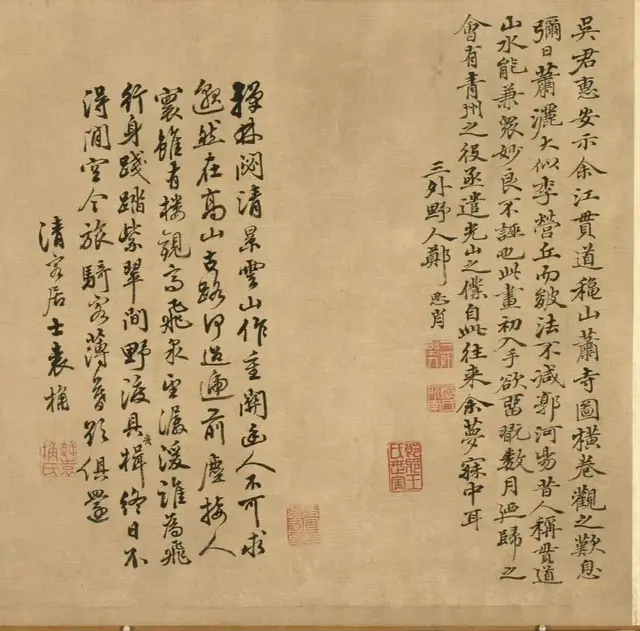 吳君惠安示余江貫道穐山蕭寺圖橫卷觀之歎息
彌日蕭灑大似李營丘而皴法不減郭河陽昔人稱貫道
山水能兼眾妙良不誣也此畫初入手欲留翫數月迺歸之
會有青州之役亟遣光山之僕自此往來余夢寐中耳
三外野人鄭思肖
禪林閟清景雲山作重關幽人不可求
邈然在高山古路何迢遞前塵接人
寰雖有樓觀高飛泉玉潺湲誰為飛
行身踐踏紫翠間野渡具舟楫終日不
得閒空令旅騎客薄暮影俱還
清容居士袁桷